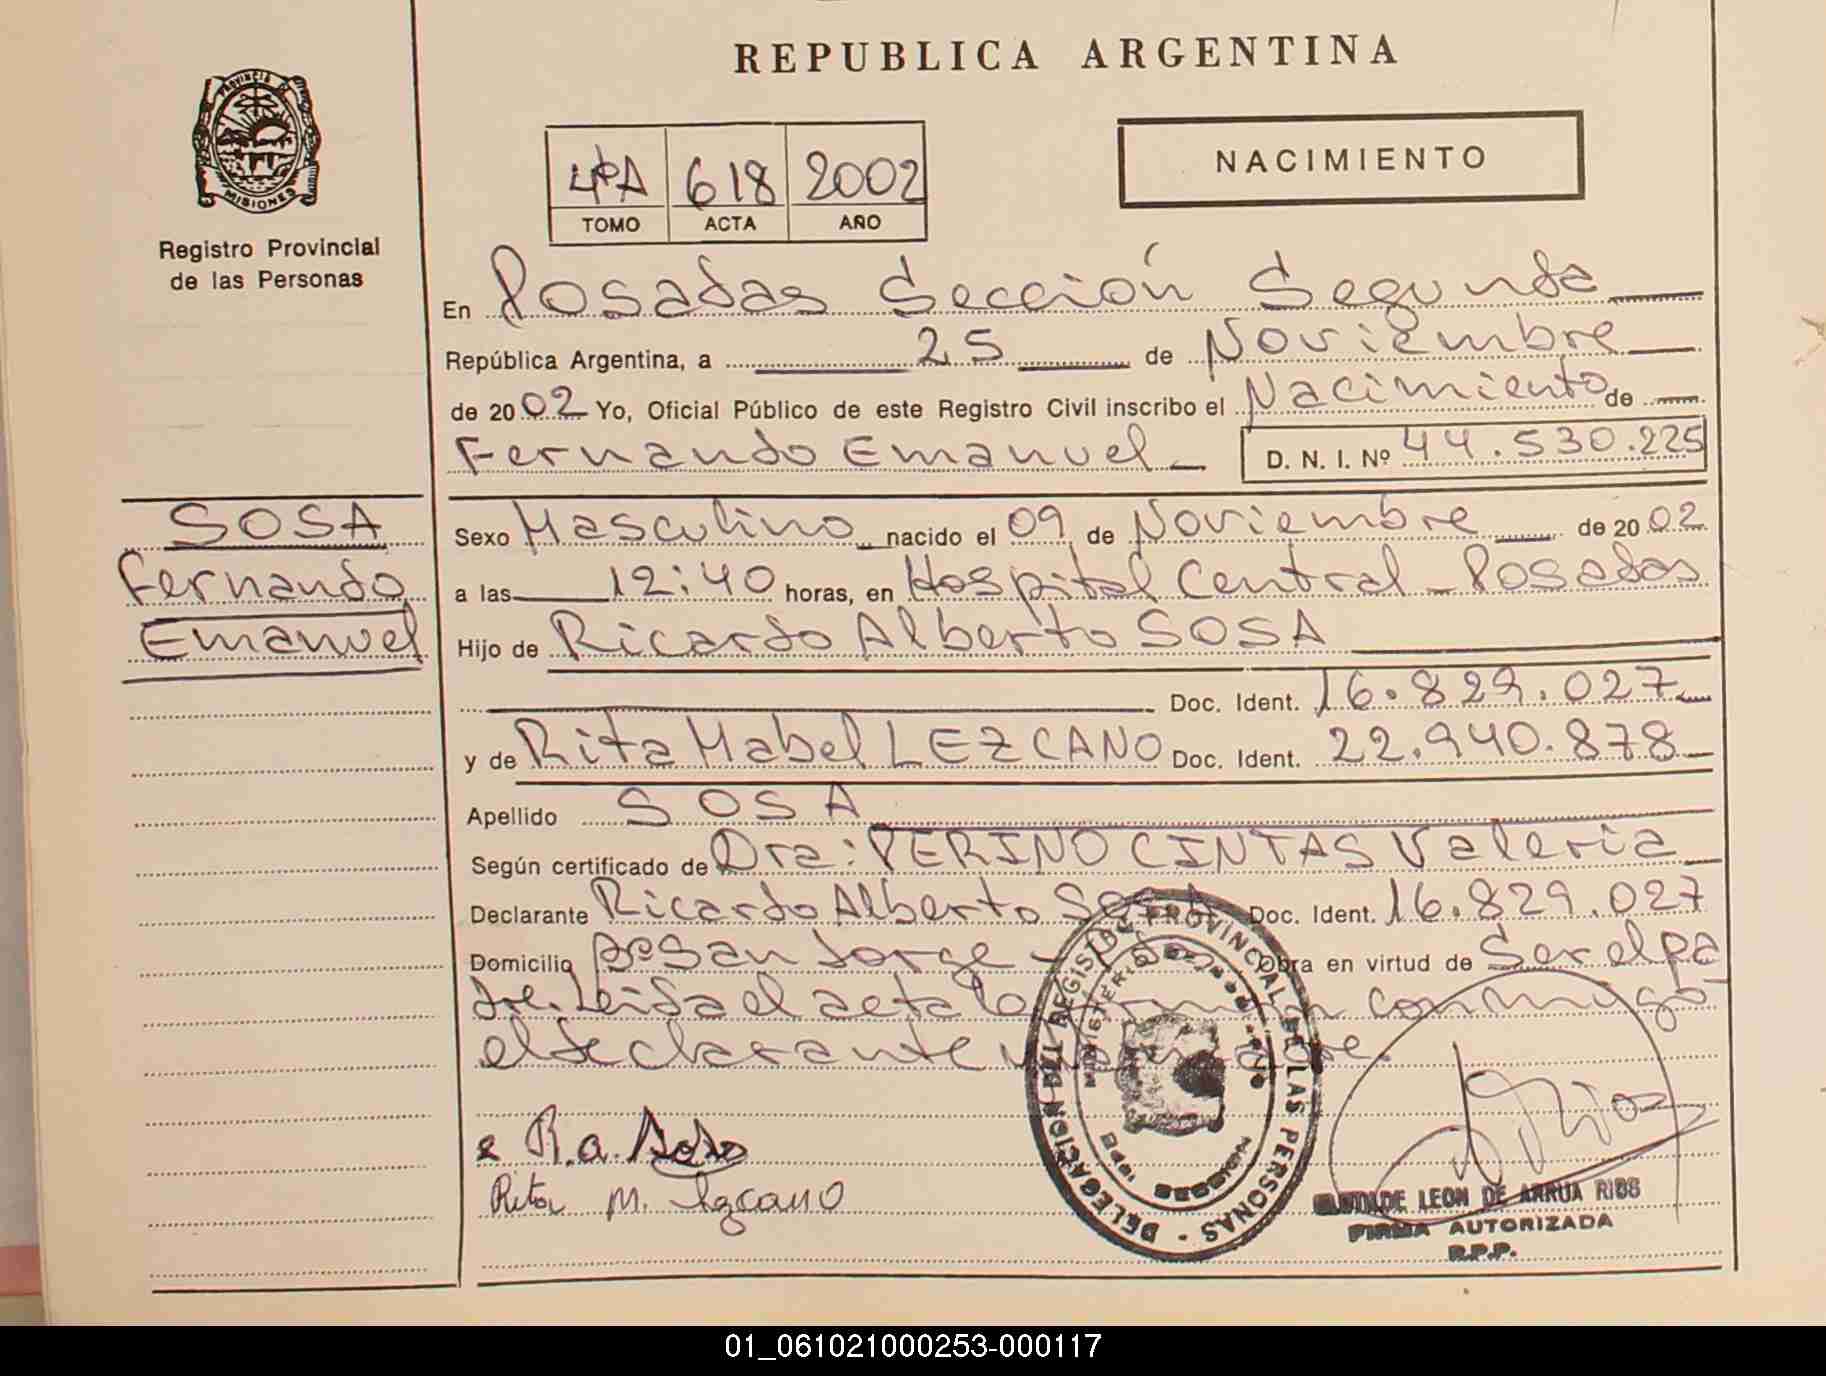 REPUBLICA ARGENTINA
PROVINCIA DE
MISIONES
Registro Provincial
de las Personas
4ºA 618 2002
TOMO ACTA AÑO
NACIMIENTO
En Posadas Sección Segunda
República Argentina, a 25 de Noviembre
de 2002 Yo, Oficial Público de este Registro Civil inscribo el Nacimiento de
Fernando Emanuel D. N. I. Nº 44.530.225
SOSA
Fernando
Emanuel
Sexo Masculino nacido el 09 de Noviembre de 2002
a las 12:40 horas, en Hospital Central - Posadas
Hijo de Ricardo Alberto SOSA
Doc. Ident. 16.829.027
y de Rita Mabel LEZCANO Doc. Ident. 22.940.878
Apellido SOSA
Según certificado de Dra: PERINO CINTAS Valeria
Declarante Ricardo Alberto SOSA Doc. Ident. 16.829.027
Domicilio Bº San Jorge - Obra en virtud de Ser el pa
dre. Leida el acta la conmigo
el declarante
DELEGACION DEL REGISTRO PROVINCIAL DE LAS PERSONAS
MINISTERIO
R.a. Sosa
Rita M. Lezcano
LEON DE ARRUA RIOS
FIRMA AUTORIZADA
R.P.P.
01_061021000253-000117